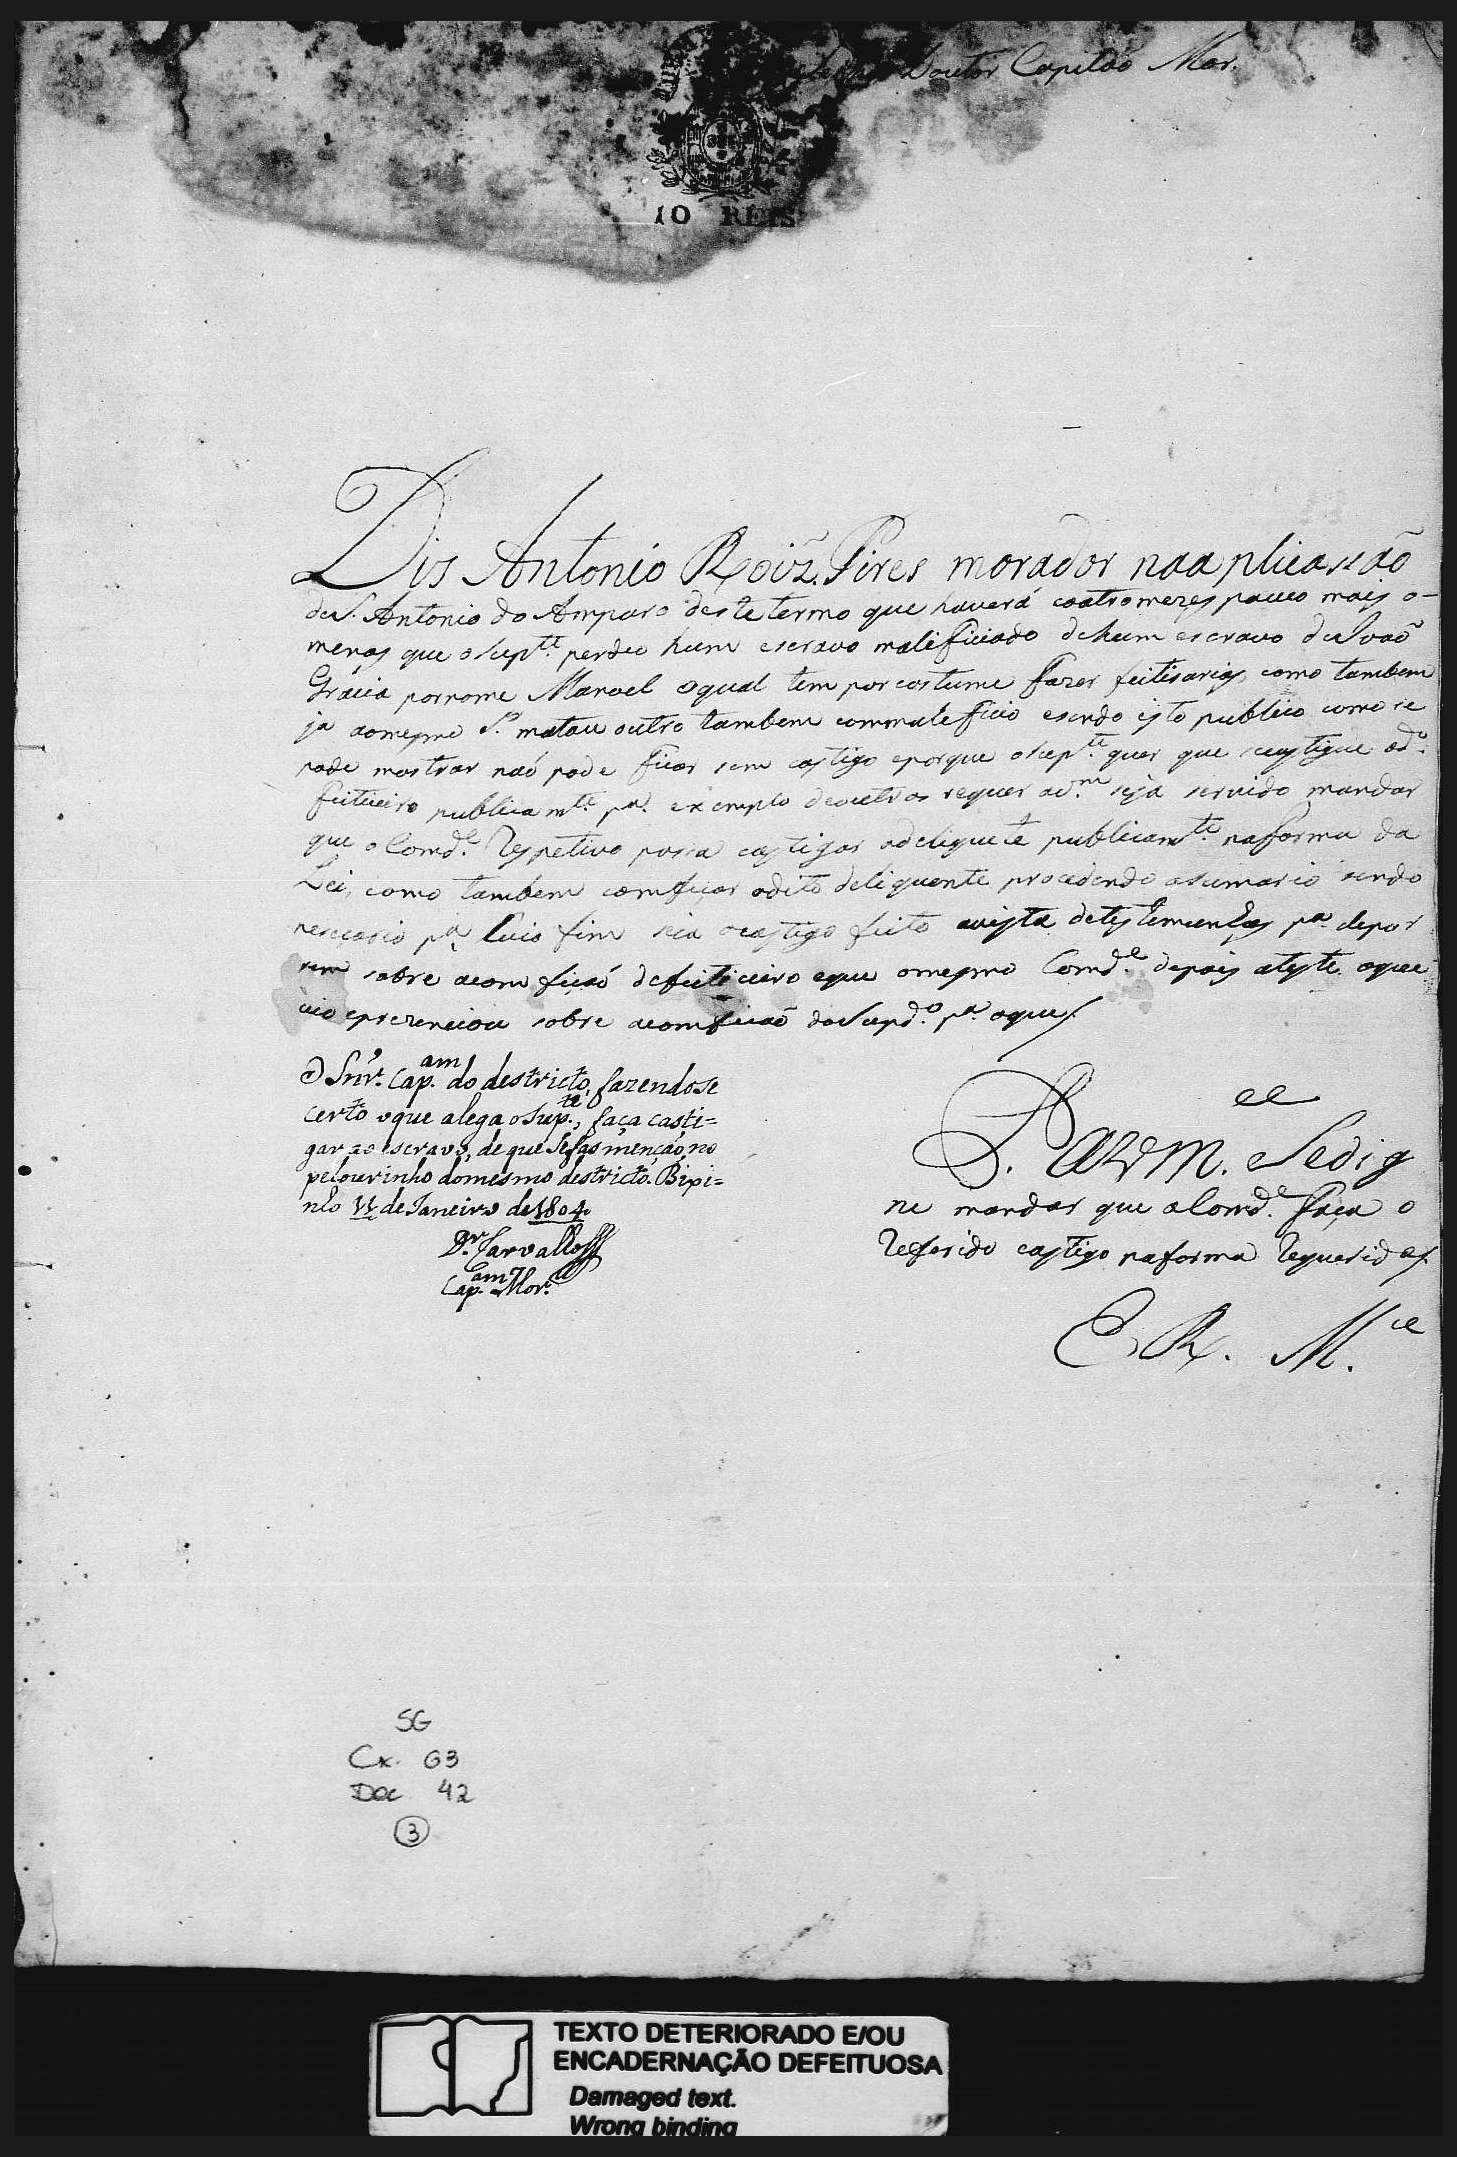 Doutor Capitão Mor.
10 REIS
Dis Antonio Roiz. Pires morador na aplicassão
de S. Antonio do Amparo deste termo que haverá coatro mezes pouco mais o-
menos que o Sup.te perdeo hum escravo malificiado de hum escravo de Joaõ
Gracia por nome Manoel o qual tem por costume fazer feitisarias, como tambem
ja ao mesmo S.r matou outro tambem com maleficio e sendo isto publico como se
pode mostrar naõ pode ficar sem castigo e porque o Sup.te quer que se castigue o d.o
feiticeiro publicam.te p.a exemplo de outros requer a v.m seja servido mandar
que o Comd.e Respetivo possa castigar o deliquete publicam.te na forma da
Lei, como tambem comfiçar o dito deliquente procedendo a sumario sendo
nesecario p.a Cuio fim seia o castigo feito a vista de testemunhas p.a depor
rem sobre a comfiçaõ do feiticeiro e que o mesmo Comd.e depois ateste o que
vio e prezenciou sobre a comficaõ do Supd.o p.a o que
O Snr. Cap.am do destricto, fazendose
certo o que alega o Sup.te, faça casti=
gar ao escravo, de que se fas menção, no
pelourinho do mesmo destricto. Bipi=
nho 11 de Janeiro de 1804
D.or Carvalho
Cap.am Mor.
P. a V M.ce Se dig
ne mandar que o Comd.e faça o
Referido castigo na forma Requerida
E. R. M.ce
SG
Cx. 63
Doc 42
3
TEXTO DETERIORADO E/OU
ENCADERNAÇÃO DEFEITUOSA
Damaged text.
Wrong binding